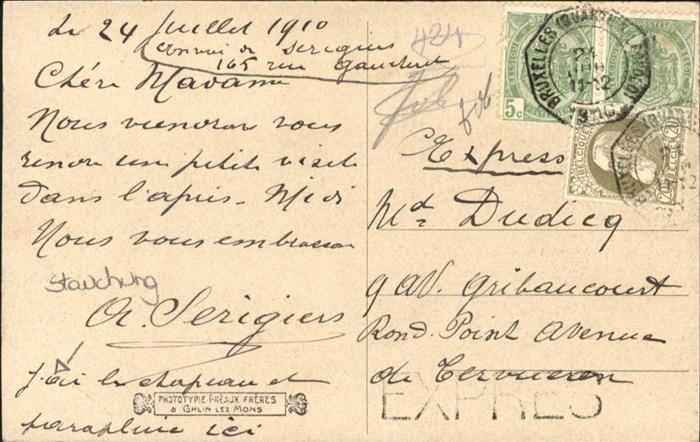 Le 24 Juillet 1910
envoi de Serigiers
165 rue Gaucheret
Chère Madame
Nous viendrons vous
rendre une petite visite
dans l'après-Midi
Nous vous embrassons
Stauchung
A. Serigiers
J'ai le chapeau et
parapluie ici
PHOTOTYPIE FRÉAUX FRÈRES
À GHLIN LEZ MONS
424
5c
BRUXELLES (QUART
24
11-12
1910
BELGIQUE
Express
Md Dudicq
9 AV. Gribaucourt
Rond. Point Avenue
de Tervueren
EXPRES